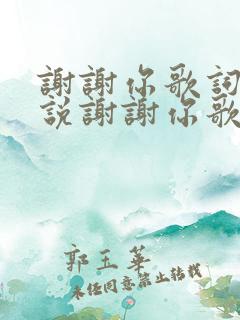 謝謝你歌詞
說謝謝你歌
郭玉華
未經同意禁止轉載